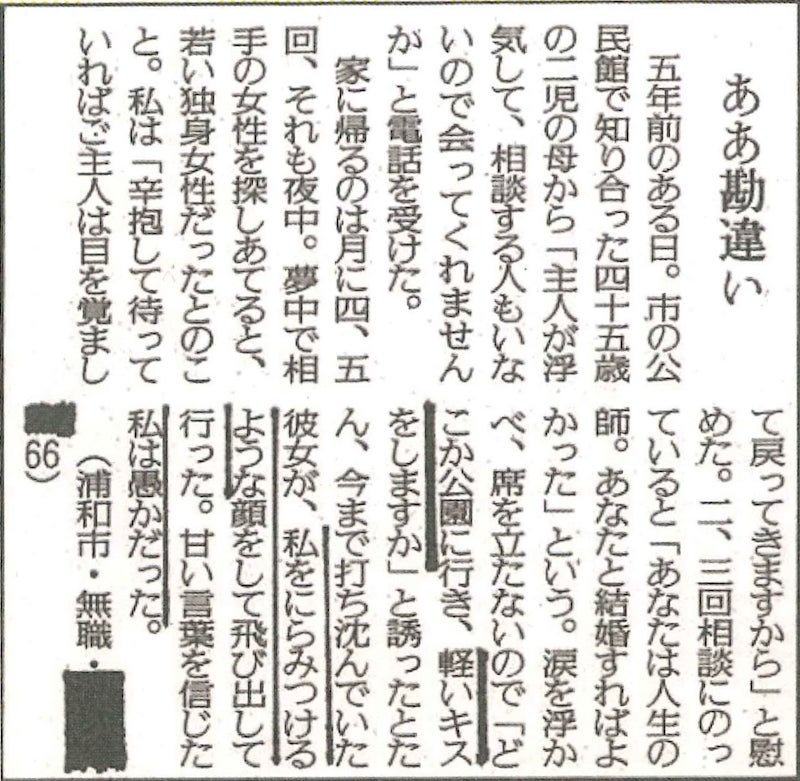 ああ勘違い
五年前のある日。市の公
民館で知り合った四十五歳
の二児の母から「主人が浮
気して、相談する人もいな
いので会ってくれません
か」と電話を受けた。
家に帰るのは月に四、五
回、それも夜中。夢中で相
手の女性を探しあてると、
若い独身女性だったとのこ
と。私は「辛抱して待って
いればご主人は目を覚まし
て戻ってきますから」と慰
めた。二、三回相談にのっ
ていると「あなたは人生の
師。あなたと結婚すればよ
かった」という。涙を浮か
べ、席を立たないので「ど
こか公園に行き、軽いキス
をしますか」と誘ったとた
ん、今まで打ち沈んでいた
彼女が、私をにらみつける
ような顔をして飛び出して
行った。甘い言葉を信じた
私は愚かだった。
（浦和市・無職・
66）